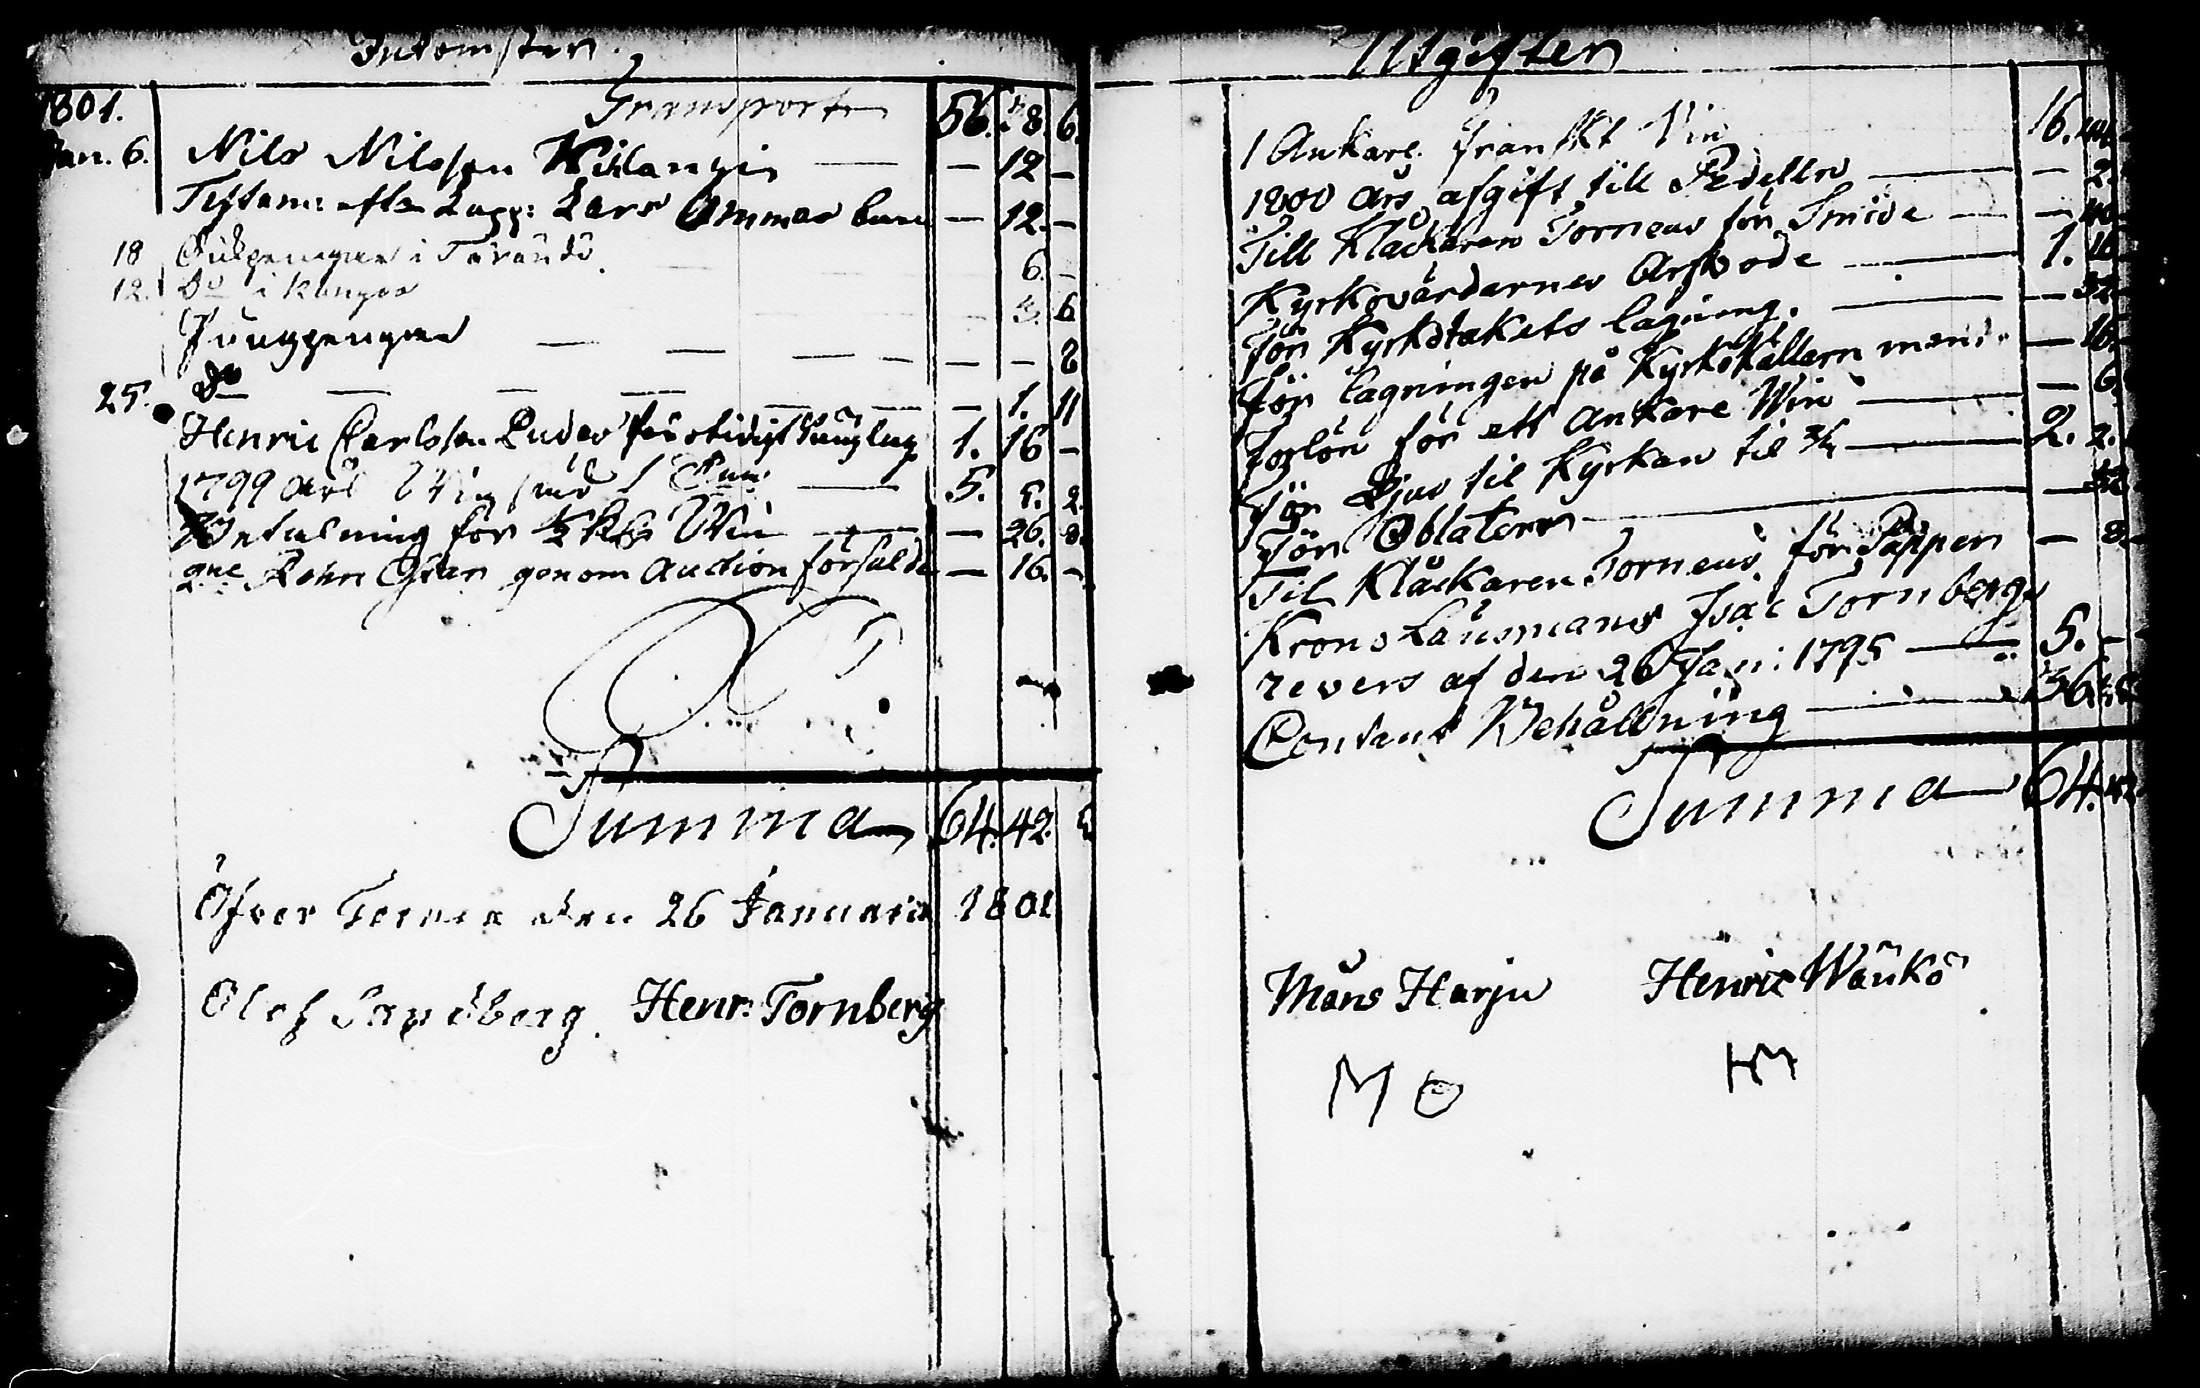 Inkomster.
1801. Transport 56. 28. 6.
Jan. 6. Nils Nilsson Kihlangis — — 12 —
Testam: efter Lapp: Lars Ommas — 12. —
18 i Tärändö 6. —
12. Do i Kengis 3. 6
Pungpengar — — — — — — 8
25. Do — — — — — — 1. 11
Henric Carlsson Ruder för otidigt 1. 16 —
1799 års Win — 5. 5. 2.
Betalning för ½ Win — — 26. 8.
2ne Rehn genom Auction försålde — 16. —
Summa 64. 42. 5
Öfver Tornea den 26 Januarii 1801
Olof Sandberg. Henr: Tornberg
Utgifter
1 Ankare franskt Vin 16. 44.
1800 års afgift till Pedeller — — 2.
Till Klåckaren Torneus för Smide — — 40.
Kyrkovärdarnes Arfvode — 1. 16
För Kyrkotakets lagning. — — 32.
För lagningen på Kyrkokällarn — 16.
Forlön för ett Ankare Win — — 6.
För Ljus til Kyrkan — 2. 2.
För Oblater — — 32
Til Klåckaren Torneus för Papper — 8.
Krons Länsmans Isac Tornbergs
revers af den 26 Jan: 1795 — 5. —
Contant Behållning — 36.
Summa 64. 42
Måns Harju Henric Wänkö
M O HM